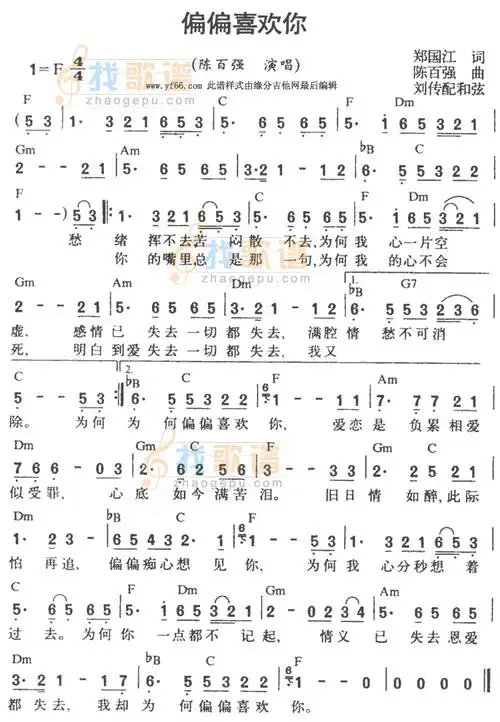 偏偏喜欢你
1=F 4/4
(陈百强 演唱)
郑国江 词
陈百强 曲
刘传配和弦
找歌谱
zhaogepu.com
www.yf66.com 此谱样式由缘分吉他网最后编辑
F C F Dm
(53 1· 321653 5· 65 65 5· 1653 21
Gm Am ♭B C
2 - - 21 5· 65 65 3·21 - 12 6· 5 5 5 1
F C F Dm
1 - -)53 1· 321653 5· 65 65 5· 1653 21
愁 绪 挥不去苦 闷散 不去,为何我 心一片空
你 的嘴里总 是那 一句,为何我 的心不会
Gm Am Dm ♭B G7
2 - - 21 5· 65 65 3·21 - 12 6· 5 5 2 36
1.
虚, 感情已 失去一切都失去, 满腔情 愁不可消
死, 明白到爱失去一切都失去, 我又
C ♭B C F Am
5 - - 53 6· 5 5 5 1 1 - - 6 7· 77 21
2.
除。 为何 为 何偏偏喜欢 你, 爱恋是 负累相爱
Dm Gm C F Gm
766 - 03 2· 2 2 1 2 3· 16 6 1 2· 2 2 2 1
似受罪, 心底 如今满苦泪。 旧日情 如醉,此际
Dm ♭B C F
1· 23 - 654432 5· 0 5 3 1· 321653
怕 再追, 偏偏痴心想 见你, 为何我 心分秒想 着
C F Dm Gm C
5· 65 65 5· 165321 2 - - 21 5· 10234
过 去。为何你 一点都不 记起, 情义 已 失去恩爱
Dm ♭B C F
3·21 - 17 6· 5 5 5 1 1 - - 0 0 0 0 0
都 失去, 我却 为 何偏偏喜欢 你。